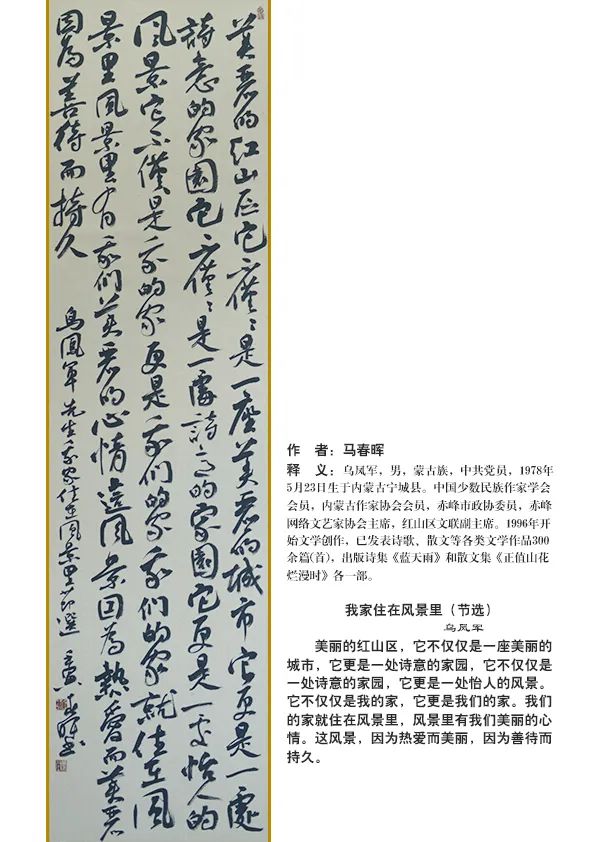 美丽的红山区它不仅仅是一座美丽的城市它更是一处
詩意的家園它不僅仅是一處詩意的家園它更是一处怡人的
风景它不僅是我的家更是我们的家我们的家就住在風
景里風景里有我们美丽的心情這风景因为熱爱而美丽
因为善待而持久
乌鳳军先生我家住在風景里节選
作　者：马春晖
释　义：乌凤军，男，蒙古族，中共党员，1978年
5月23日生于内蒙古宁城县。中国少数民族作家学会
会员，内蒙古作家协会会员，赤峰市政协委员，赤峰
网络文艺家协会主席，红山区文联副主席。1996年开
始文学创作，已发表诗歌、散文等各类文学作品300
余篇(首)，出版诗集《蓝天雨》和散文集《正值山花
烂漫时》各一部。
我家住在风景里（节选）
乌凤军
美丽的红山区，它不仅仅是一座美丽的
城市，它更是一处诗意的家园，它不仅仅是
一处诗意的家园，它更是一处怡人的风景。
它不仅仅是我的家，它更是我们的家。我们
的家就住在风景里，风景里有我们美丽的心
情。这风景，因为热爱而美丽，因为善待而
持久。